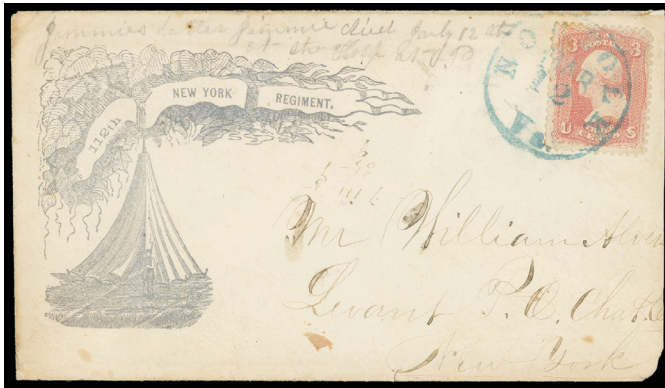 Jimmies letter Jimmie died July 12 at
at the Hosp
112th NEW YORK REGIMENT.
NORFOLK
Va
3 POSTAGE 3
U S
Mr William
Levant P.O. Chat.
New York